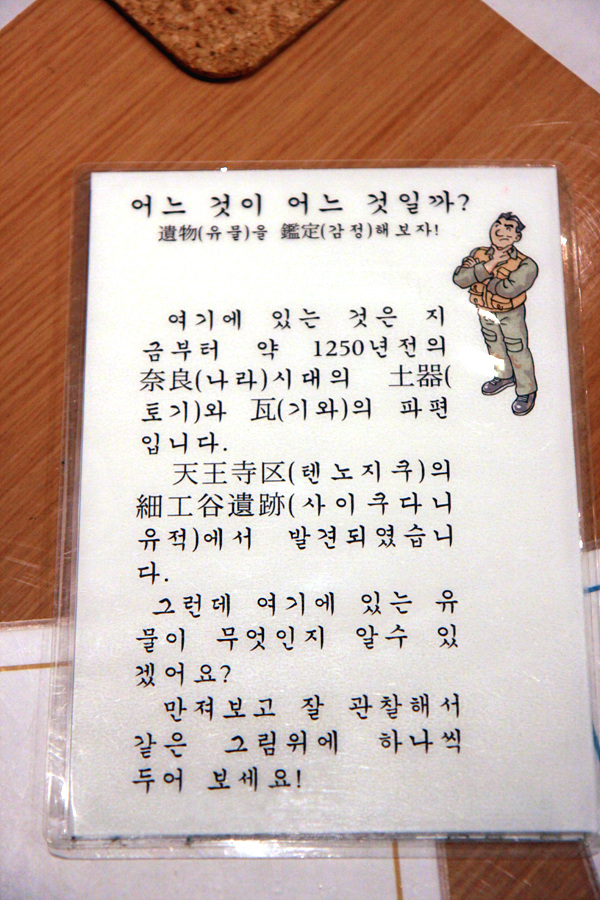 어느 것이 어느 것일까?
遺物(유물)을 鑑定(감정)해보자!
여기에 있는 것은 지
금부터 약 1250년전의
奈良(나라)시대의 土器(
토기)와 瓦(기와)의 파편
입니다.
天王寺区(텐노지쿠)의
細工谷遺跡(사이쿠다니
유적)에서 발견되였습니
다.
그런데 여기에 있는 유
물이 무엇인지 알수 있
겠어요?
만져보고 잘 관찰해서
같은 그림위에 하나씩
두어 보세요!